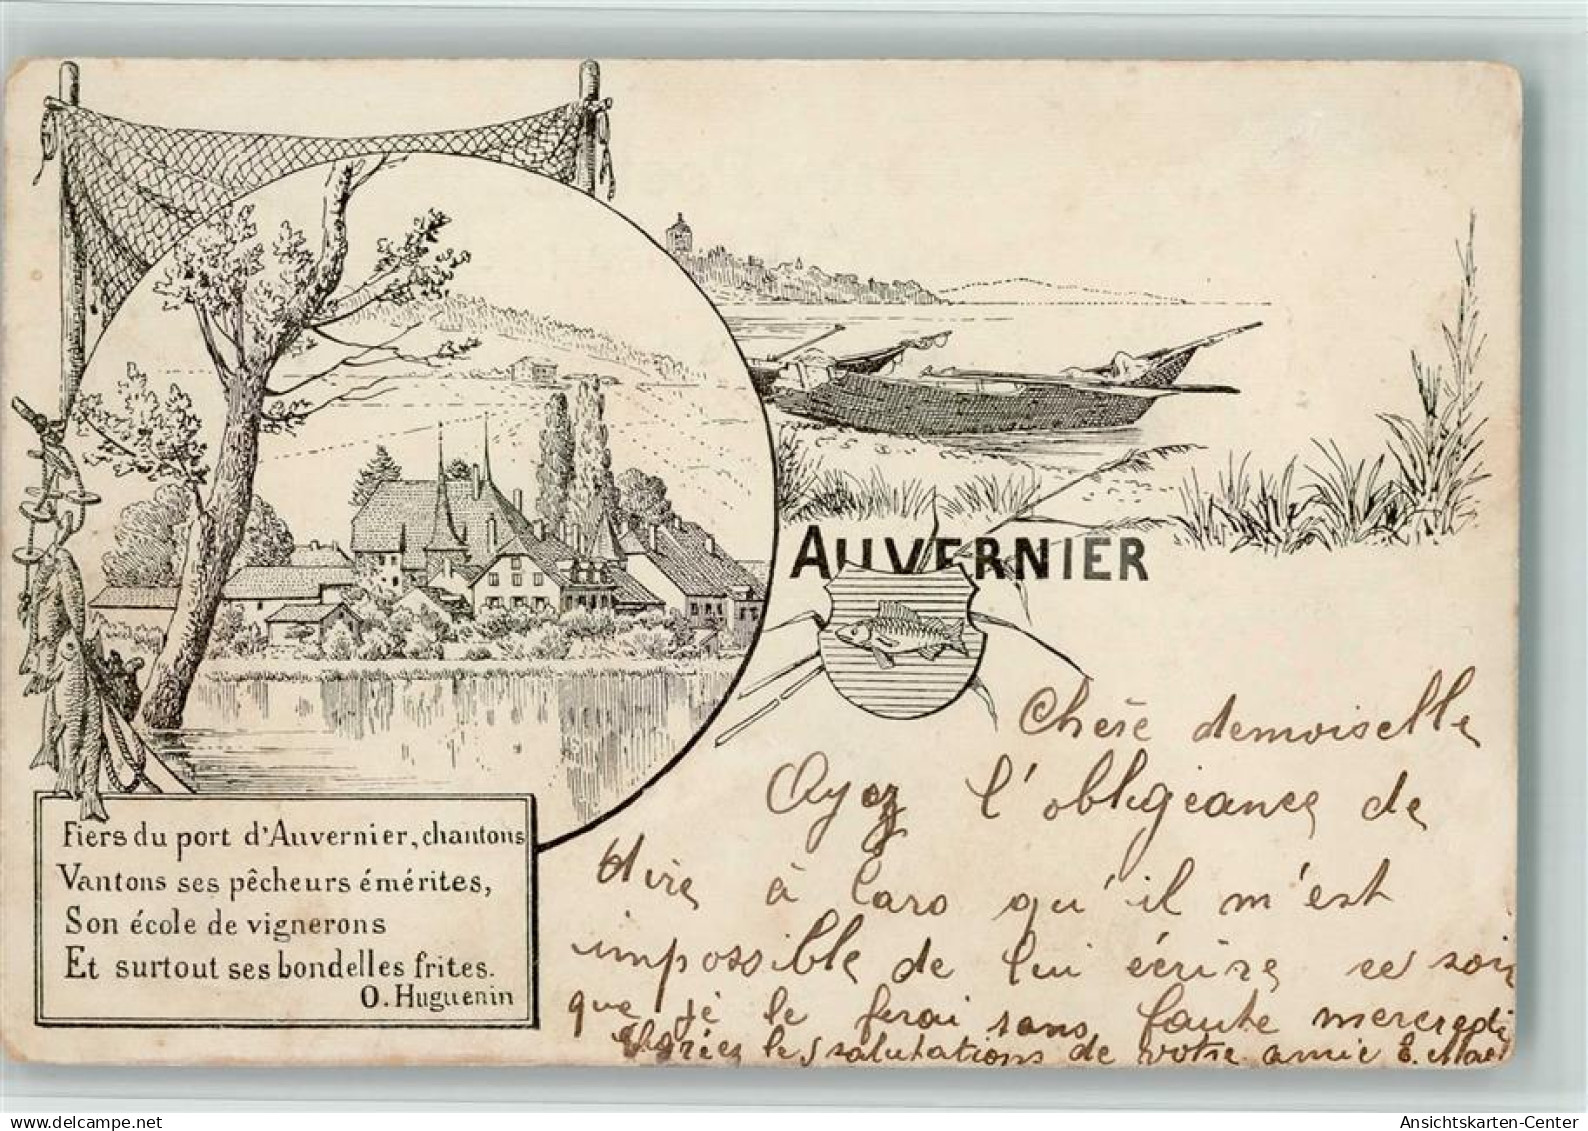 AUVERNIER
Fiers du port d'Auvernier, chantons
Vantons ses pêcheurs émérites,
Son école de vignerons
Et surtout ses bondelles frites.
O. Huguenin
Chère demoiselle
Ayez l'obligeance de
dire à Caro qu'il m'est
impossible de lui écrire ce soir
que je le ferai sans faute mercredi
Agréez les salutations de votre amie E.
Ansichtskarten-Center
www.delcampe.net